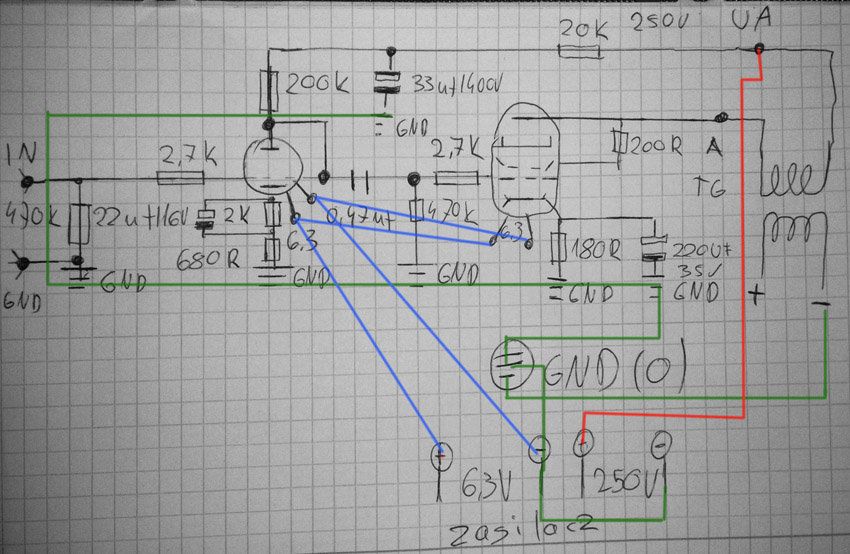 20K 250V UA
200K 33uf/400V
GND
IN 2,7K 2,7K 200R A
TG
470K 22uf/16V 2K 0,47uf 470K
6.3 6.3
680R 180R 220uf
35V
GND GND GND GND GND GND
+ -
GND (0)
+ - + -
6,3V 250V
zasilacz